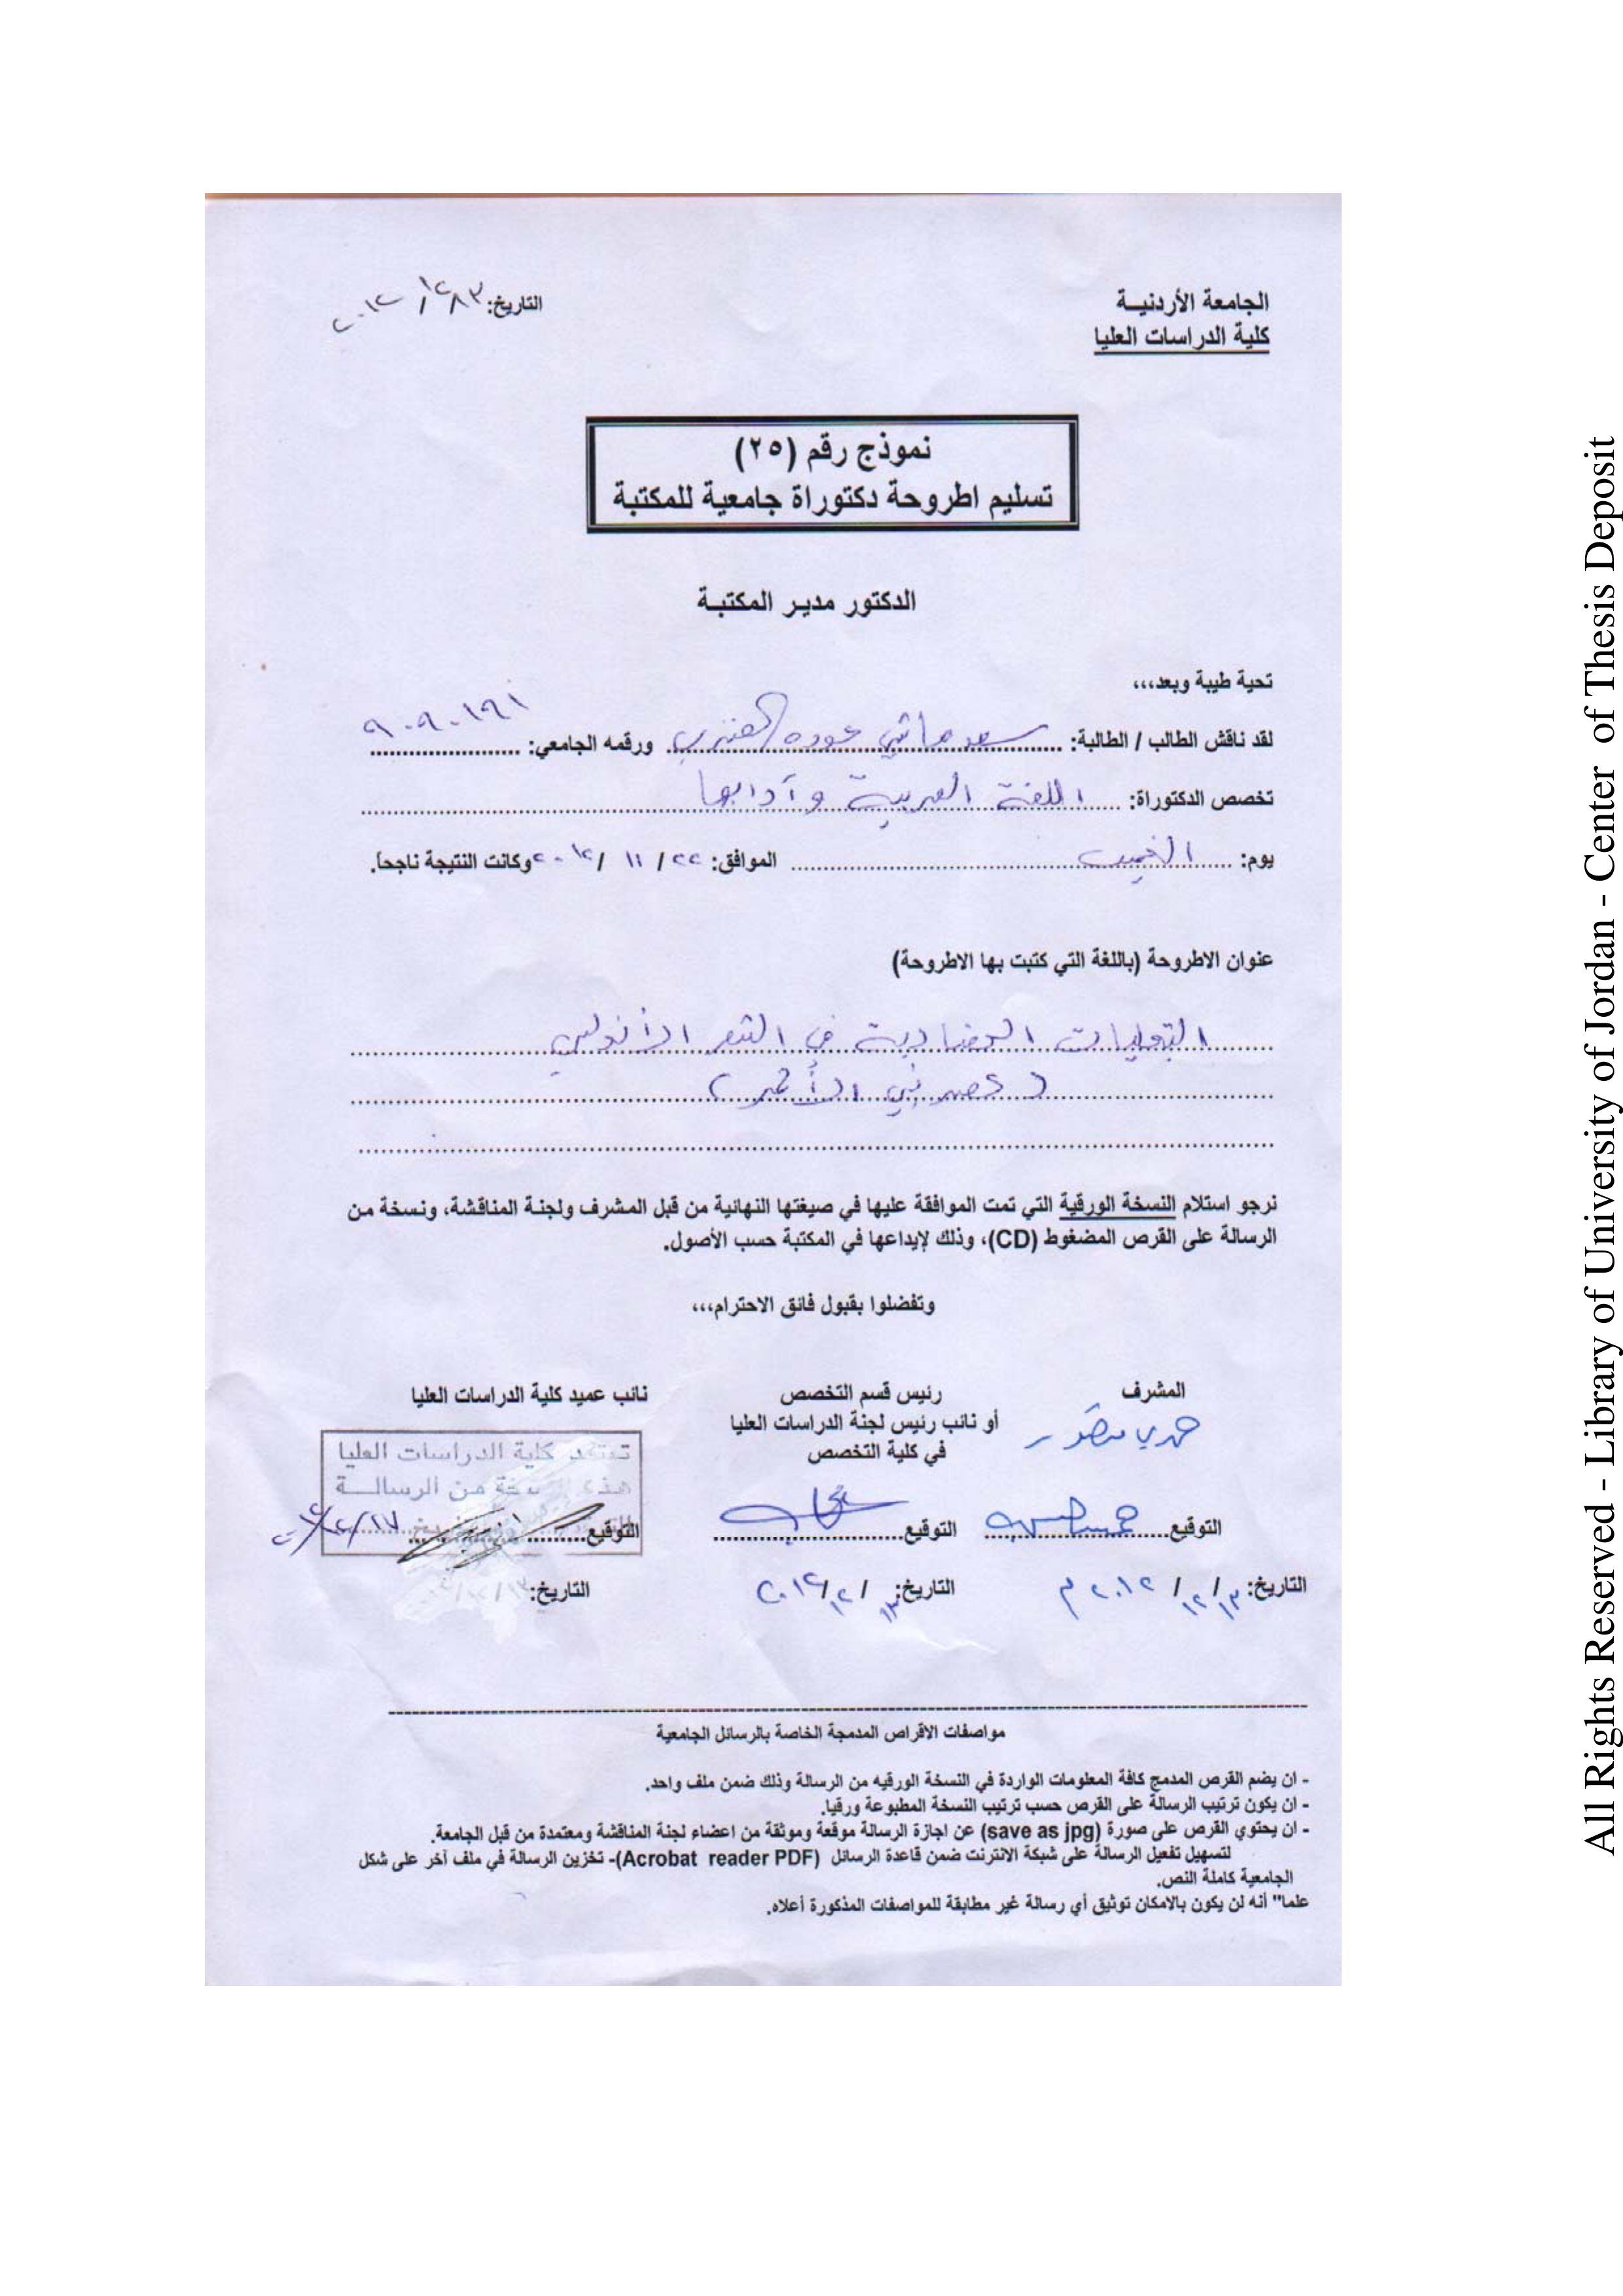 الجامعة الأردنيـة
كلية الدراسات العليا
التاريخ:
نموذج رقم (٢٥)
تسليم اطروحة دكتوراة جامعية للمكتبة
الدكتور مدير المكتبـة
تحية طيبة وبعد،،،
لقد ناقش الطالب / الطالبة: سعد هاشي عوده العنزي ورقمه الجامعي: ٩٠٩٠١٩١
تخصص الدكتوراة: اللغة العربية وآدابها
يوم: الخميس الموافق: ٢٢ / ١١ / ٢٠١٢ وكانت النتيجة ناجحاً.
عنوان الاطروحة (باللغة التي كتبت بها الاطروحة)
التجليات الحضارية في الشعر الأندلسي
(عصر بني الأحمر)
نرجو استلام النسخة الورقية التي تمت الموافقة عليها في صيغتها النهائية من قبل المشرف ولجنة المناقشة، ونسخة من
الرسالة على القرص المضغوط (CD)، وذلك لإيداعها في المكتبة حسب الأصول.
وتفضلوا بقبول فائق الاحترام،،،
المشرف
حمدي منصور
التوقيع
التاريخ: ١٣/ ١٢/ ٢٠١٢ م
رئيس قسم التخصص
أو نائب رئيس لجنة الدراسات العليا
في كلية التخصص
التوقيع
التاريخ: ١٣/ ١٢/ ٢٠١٢
نائب عميد كلية الدراسات العليا
تعتمد كلية الدراسات العليا
هذه النسخة من الرسالـــة
التوقيع
التاريخ:
مواصفات الاقراص المدمجة الخاصة بالرسائل الجامعية
- ان يضم القرص المدمج كافة المعلومات الواردة في النسخة الورقيه من الرسالة وذلك ضمن ملف واحد.
- ان يكون ترتيب الرسالة على القرص حسب ترتيب النسخة المطبوعة ورقيا.
- ان يحتوي القرص على صورة (save as jpg) عن اجازة الرسالة موقعة وموثقة من اعضاء لجنة المناقشة ومعتمدة من قبل الجامعة.
لتسهيل تفعيل الرسالة على شبكة الانترنت ضمن قاعدة الرسائل (Acrobat reader PDF)- تخزين الرسالة في ملف آخر على شكل
الجامعية كاملة النص.
علما" أنه لن يكون بالامكان توثيق أي رسالة غير مطابقة للمواصفات المذكورة أعلاه.
All Rights Reserved - Library of University of Jordan - Center of Thesis Deposit